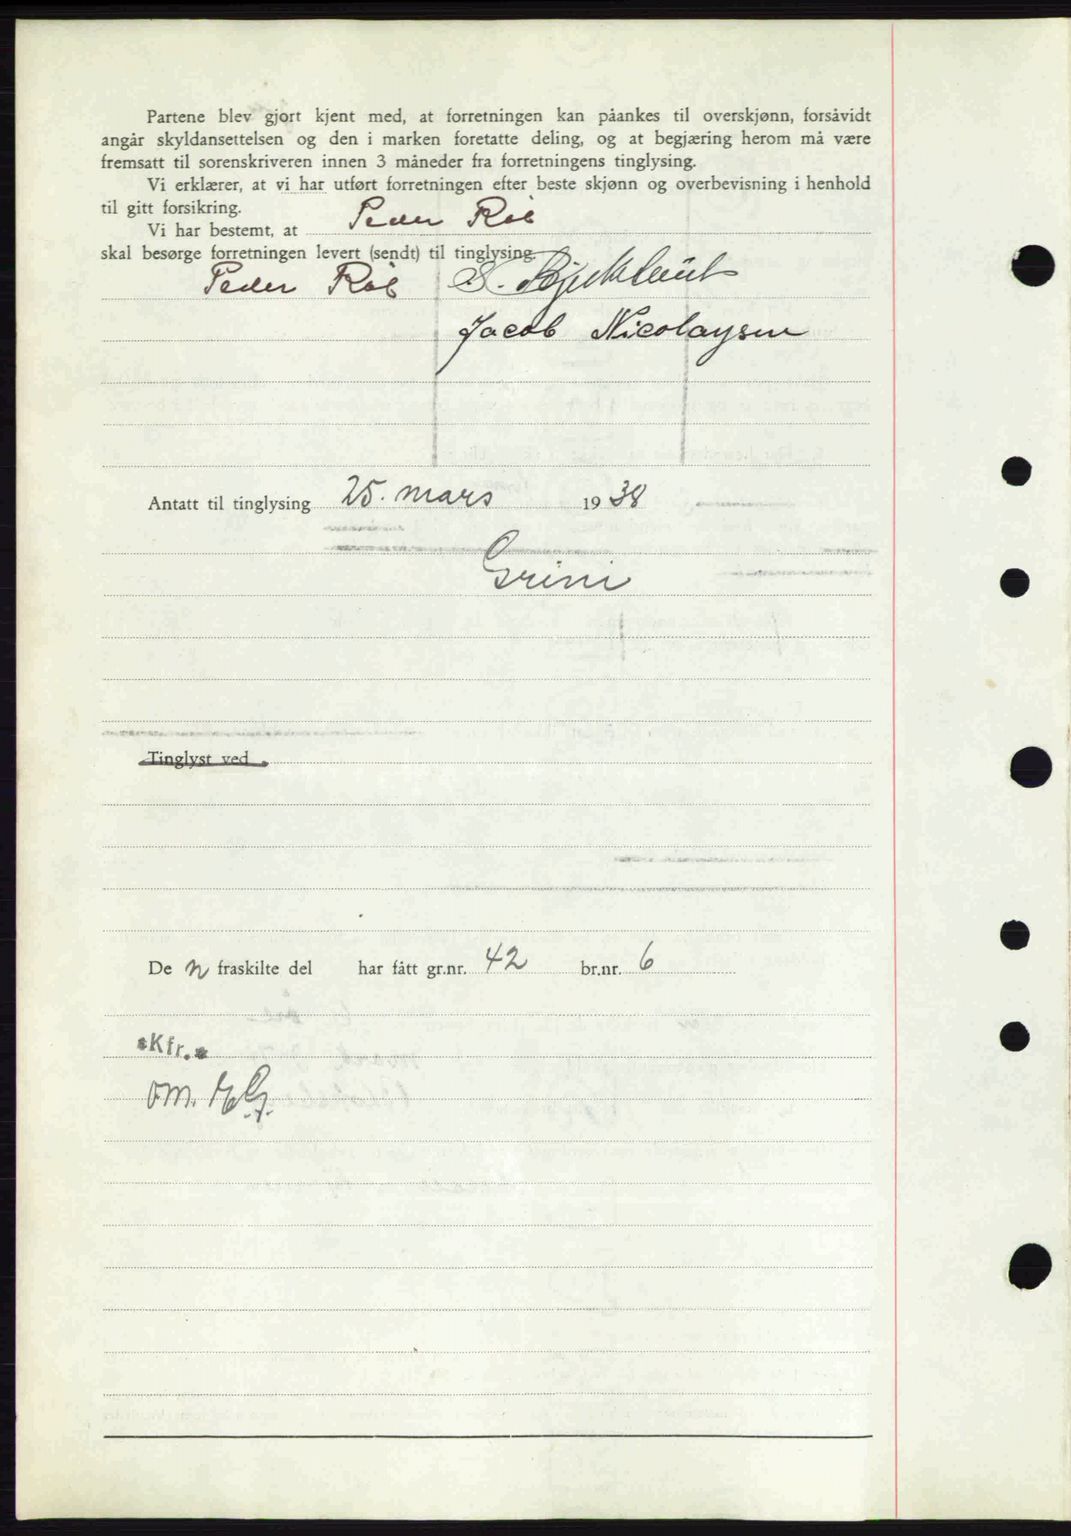 Partene blev gjort kjent med, at forretningen kan påankes til overskjønn, forsåvidt
angår skyldansettelsen og den i marken foretatte deling, og at begjæring herom må være
fremsatt til sorenskriveren innen 3 måneder fra forretningens tinglysing.
Vi erklærer, at vi har utført forretningen efter beste skjønn og overbevisning i henhold
til gitt forsikring.
Vi har bestemt, at Peder Röl
skal besørge forretningen levert (sendt) til tinglysing.
Peder Röl S.
Jacob Nicolaysen
Antatt til tinglysing 25. mars 1938
Grini
Tinglyst ved
De n fraskilte del har fått gr.nr. 42 br.nr. 6
*Kfr.*